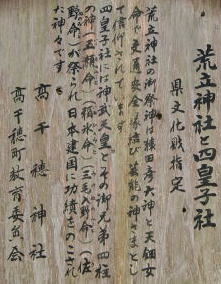 荒立神社と四皇子社
県文化財指定
荒立神社の御祭神は猿田彦大神と天鈿女
命で交通安全、縁結び、芸能の神さまとし
て信仰されています
四皇子社には神武天皇とその御兄弟四柱
の神(五瀬命)(稲氷命)(三毛入野命)(佐
野命)が祭られ日本建国に功績をのこされ
た神々です
高千穂神社
高千穂町教育委員会